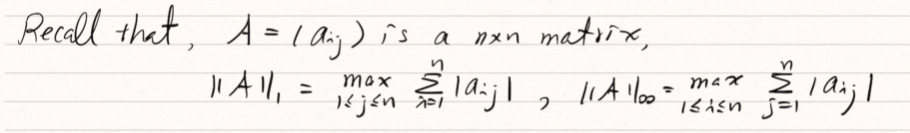 Recall that, A = (aij) is a n×n matrix,
||A||₁ = max 1≤j≤n ∑ i=1 n |aij| , ||A||∞ = max 1≤i≤n ∑ j=1 n |aij|